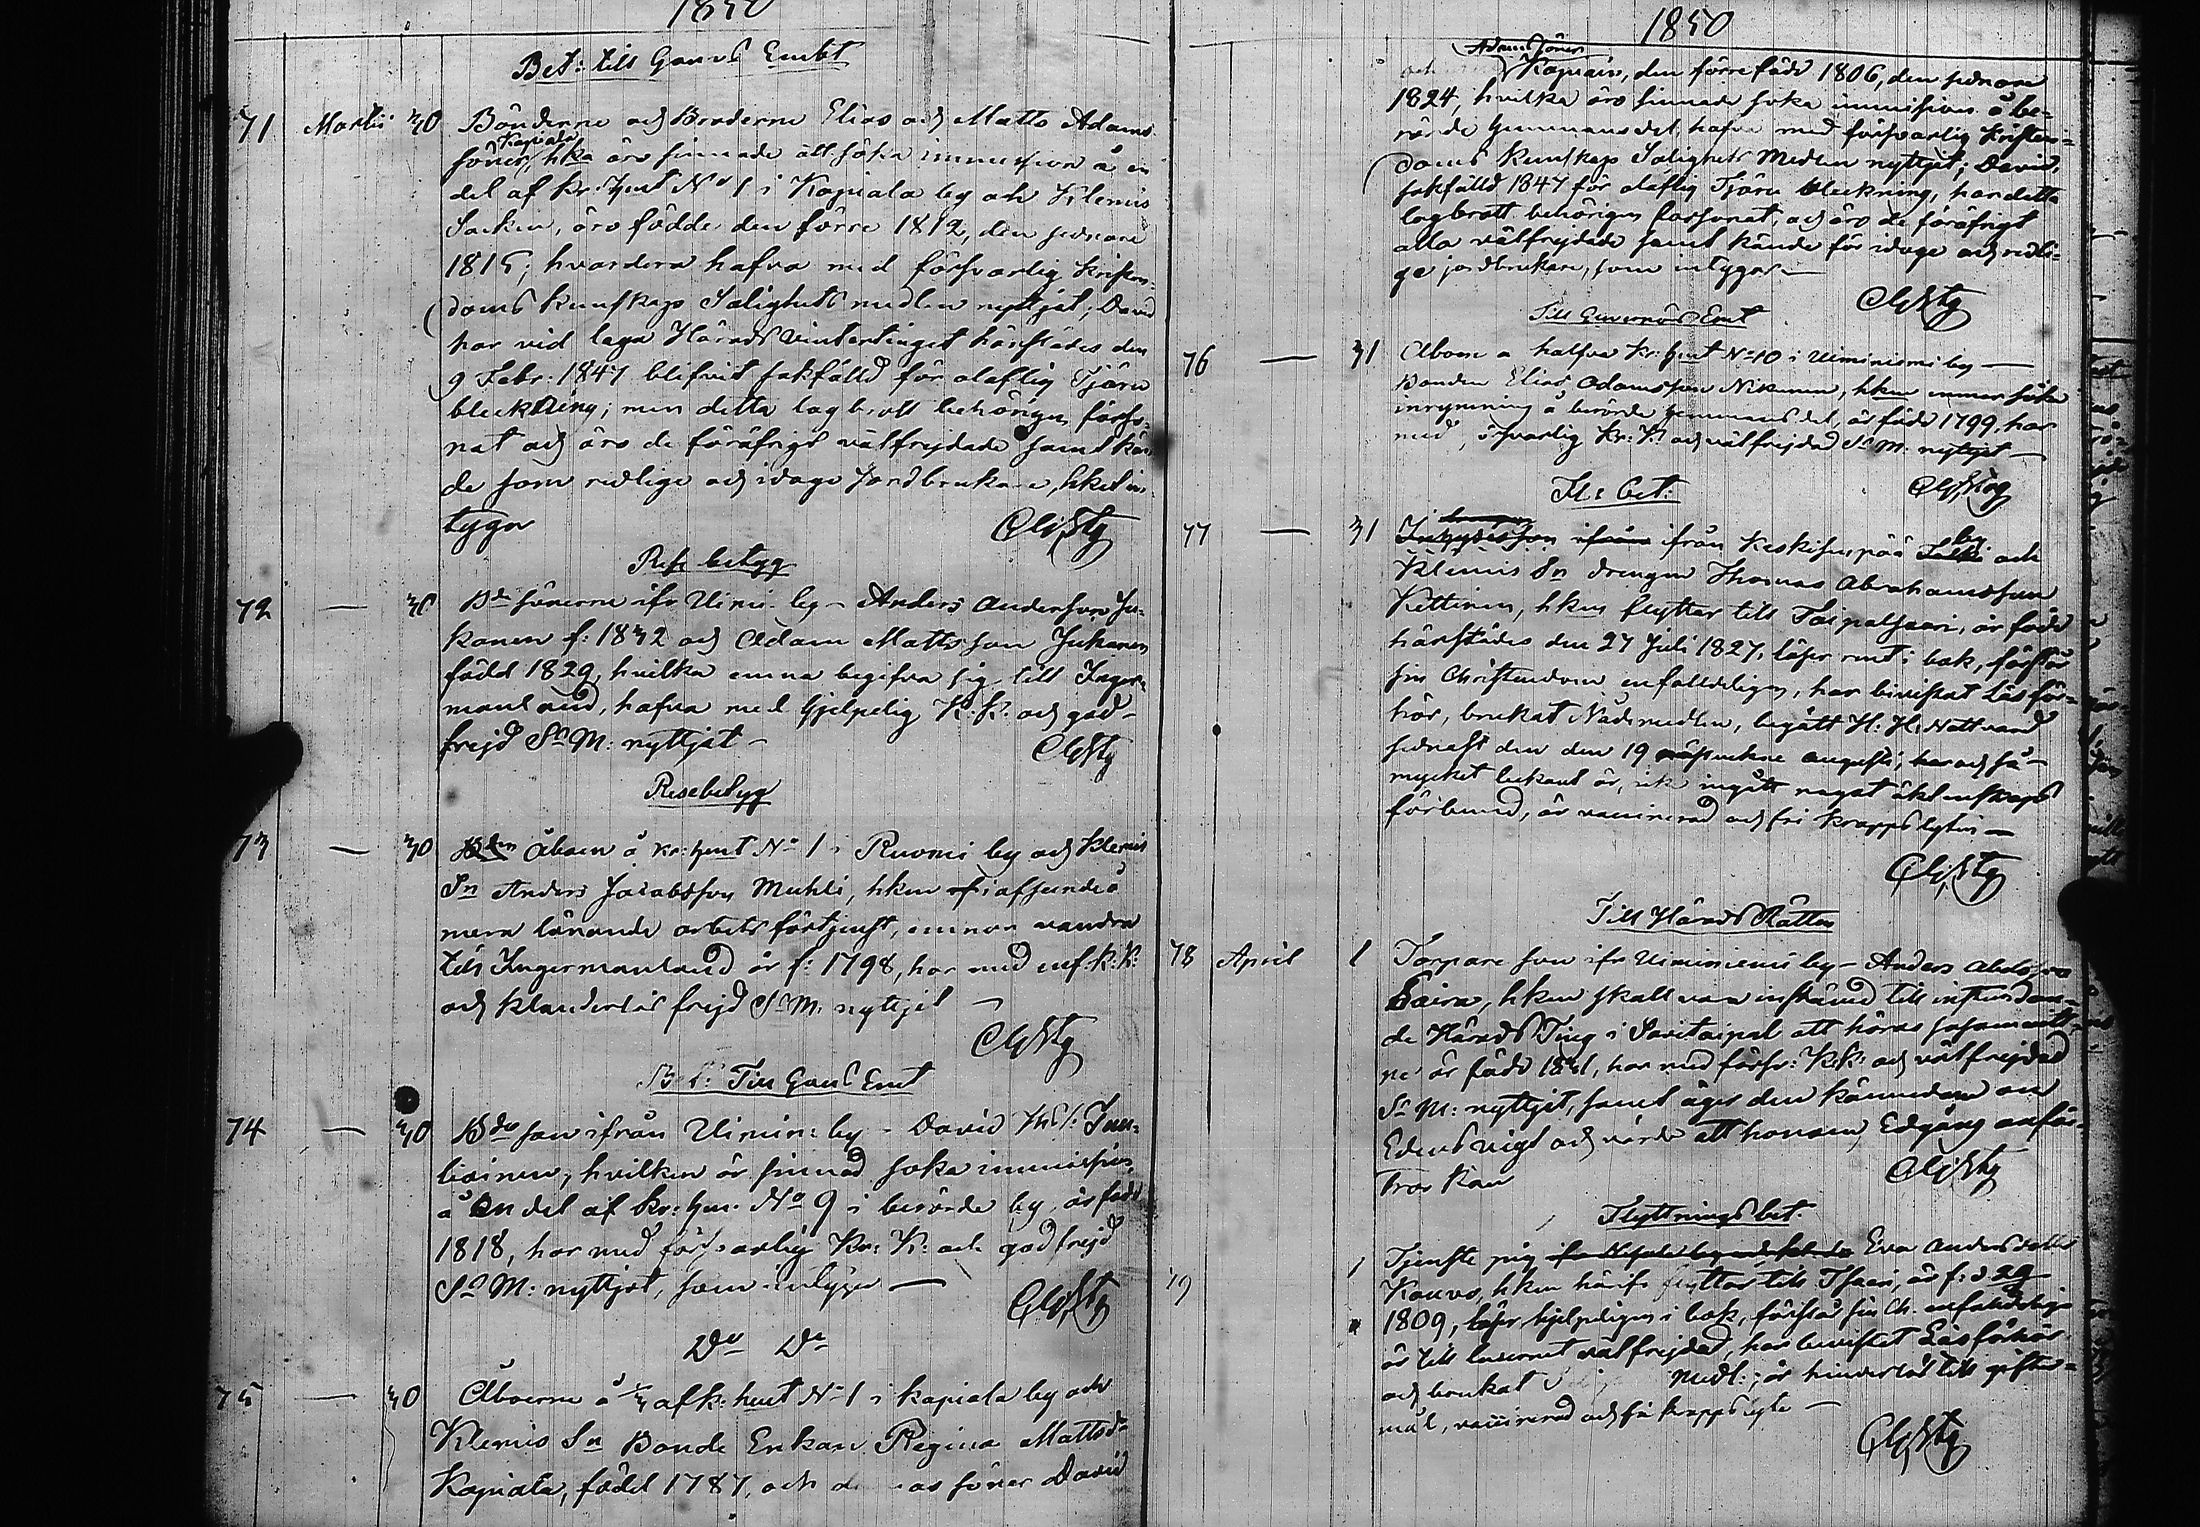 1850
Bet: till Gouvs Embt
71 Martii 30 Bönderne och Bröderne Elias och Matts Adams
Kapiala
söner, hka äro sinnade att söka immission å en
del af Kr: Hmt No 1 i Kapiala by och Klemis
Socken, äro födde den förre 1812, den sednare
1815; hvardera hafva med försvarlig Kristen-
doms kunskap Salighets medlen nyttjat; David
har vid laga Härads Vintertinget härstädes den
9 Febr: 1847 blifvit sakfälld för olaflig Tjäru
bleckning; men detta lagbrott behörigen förso-
nat och äro de föröfrigt välfrejdade samt kän
de som redlige och idoge Jordbrukare, hket in-
tygar
Rese betyg
72 — 30 Bde sönerne ifr Uimi. by – Anders Andersson Ju-
kanen f: 1832 och Adam Mattsson Jukanen
född 1829, hvilka ämna begifva sig till Inger-
manland, hafva med hjelpelig K. K. och god-
frejd Ss M: nyttjat –
Resebetyg
73 — 30 Åboen å Kr: Hmt No 1 i Ruomi by och Klemis
Sn Anders Jacobsson Muhli, hken i afseende å
mera lönande arbets förtjenst, ämnar vandra
till Ingermanland är f: 1798, har med enf: K: K:
och klanderlös frejd Ss M. nyttjat –
Bet: Till Gouvs Emt
74 — 30 Bde son ifrån Uimin: by – David
hvilken är sinnad söka immission
å en del af Kr: Hm. No 9 i berörde by, är född
1818, har med försvarlig Kr: K: och god frejd
Ss M: nyttjat, som intygar —
Do Do
75 — 30 Åboerne å 1/3 af K: hmt No 1 i Kapiala by och
Klemis Sn Bonde Enkan Regina Mattsdr
Kapiala, född 1787, och söner David
1850
Adams söner
och Kapiain, den förre född 1806, den sednare
1824, hvilka äro sinnade söka immission å be-
rörde hemmansdel, hafva med försvarlig Kristen-
doms kunskap Salighets Medlen nyttjat; David,
sakfälld 1847 för olaflig Tjäru bleckning, har detta
lagbrott behörigen försonat, och äro de föröfrigt
alla välfrejdade samt kände för idoge och redli-
ge jordbrukare, som intygar —
Till Guvernörs Emt
76 — 31 Åboen å halfva Kr: Hmt No 10 i Uiminiemi by —
Bonden Elias Adamsson Nikunen, hken ämnar söka
inrymning å berörde hemmansdel, är född 1799, har
med försvarlig Kr: K och välfrejdad Ss M: nyttjat —
Fl: bet:
77 — 31 ifrån Keskisenpää by och
Klemis Sn drängen Thomas Abrahamsson
Kettinen, hken flyttar till Taipalsaari, är född
härstädes den 27 Juli 1827, läser rent i bok, förstår
sin Christendom enfalldeligen, har bivistat Läsför-
hör, brukat Nådemedlen, begått H: H: Nattvard
sednast den 19 Augusti, har och så
mycket bekant är, ick ingått något äktenskaps
förbund, är vaccinerad och fri kroppslyten —
Till Härads Rätten
78 April 1 Torpare son ifr Uiminiemi by – Anders
Saira, hken skall vara instämd till instundan-
de Härads Ting i Savitaipal att höras såsom vitt-
ne är född har med försv: K: K: och välfrejdad
Ss M: nyttjat, samt äger den kännedom om
Edens vigt och värde att honom Edgång anför-
tros kan
Flyttningsbet.
79 1 Tjenste pig Eva Andersdotter
Kauvo, hken härifr flyttar till Tsaari, är f: d 29
1809, läser hjelpeligen i bok, förstår sin Ch. enfaldeligen
är till leverne välfrejdad, har bevistat Läsförhör
och brukat Medl:; är hinderlös till gifter-
mål, vaccinerad och fri kroppslyte —